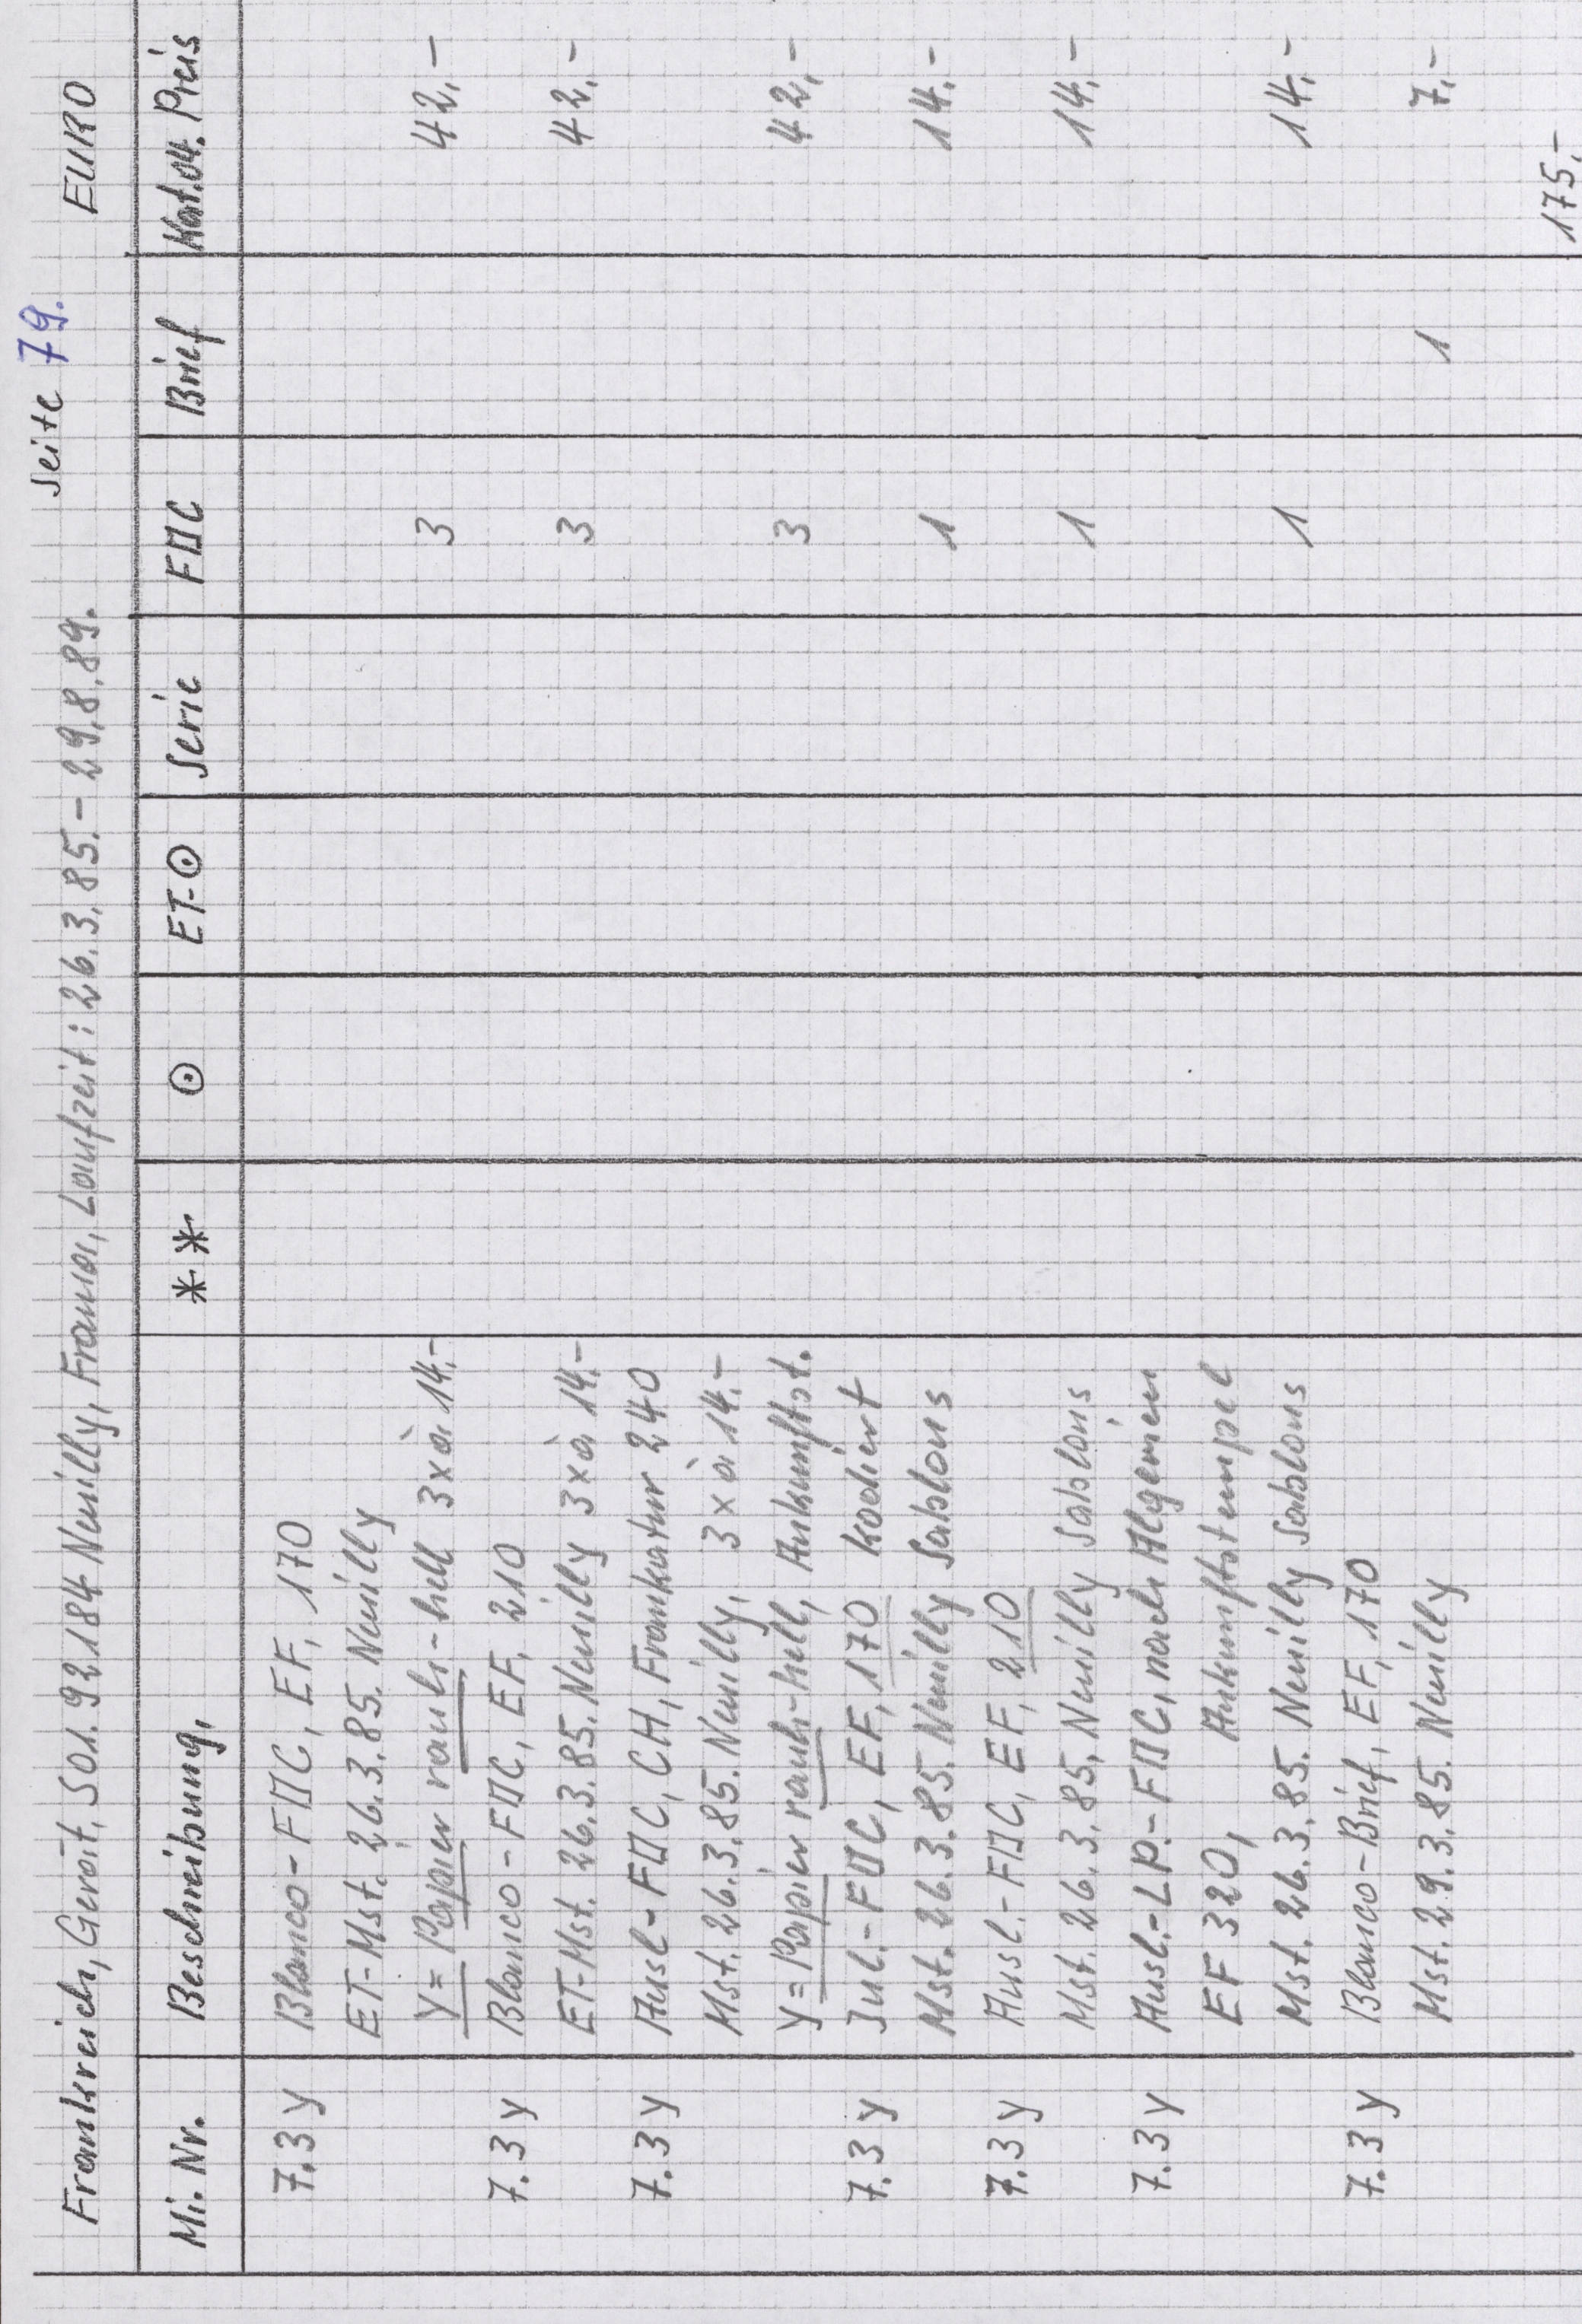 Seite 79.
Frankreich, Gerät. 501. 92184 Neuilly, Frama, Laufzeit: 26.3.85.- 29.8.89. EURO
Mi. Nr. Beschreibung, ** ⊙ ET-⊙ Serie FDC Brief Kat.04. Preis
7.3y Blanco-FDC, EF, 170
ET-Mst. 26.3.85. Neuilly
y= Papier rauh-hell 3xà 14.- 3 42.-
7.3y Blanco-FDC, EF, 210
ET-Mst. 26.3.85. Neuilly 3xà 14.- 3 42.-
7.3y Ausl-FDC, CH, Frankatur 240
Mst. 26.3.85. Neuilly, 3xà 14.-
y= Papier rauh-hell, Ankunftst. 3 42.-
7.3y Inl.-FDC, EF, 170 kodiert
Mst. 26.3.85. Neuilly Sablons 1 14.-
7.3y Ausl.-FDC, EF, 210
Mst. 26.3.85. Neuilly Sablons 1 14.-
7.3y Ausl.-LP.-FDC, nach Algerien
EF 320, Ankunftstempel
Mst. 26.3.85. Neuilly Sablons 1 14.-
7.3y Blanco-Brief, EF, 170
Mst. 29.3.85. Neuilly 1 7.-
175.-